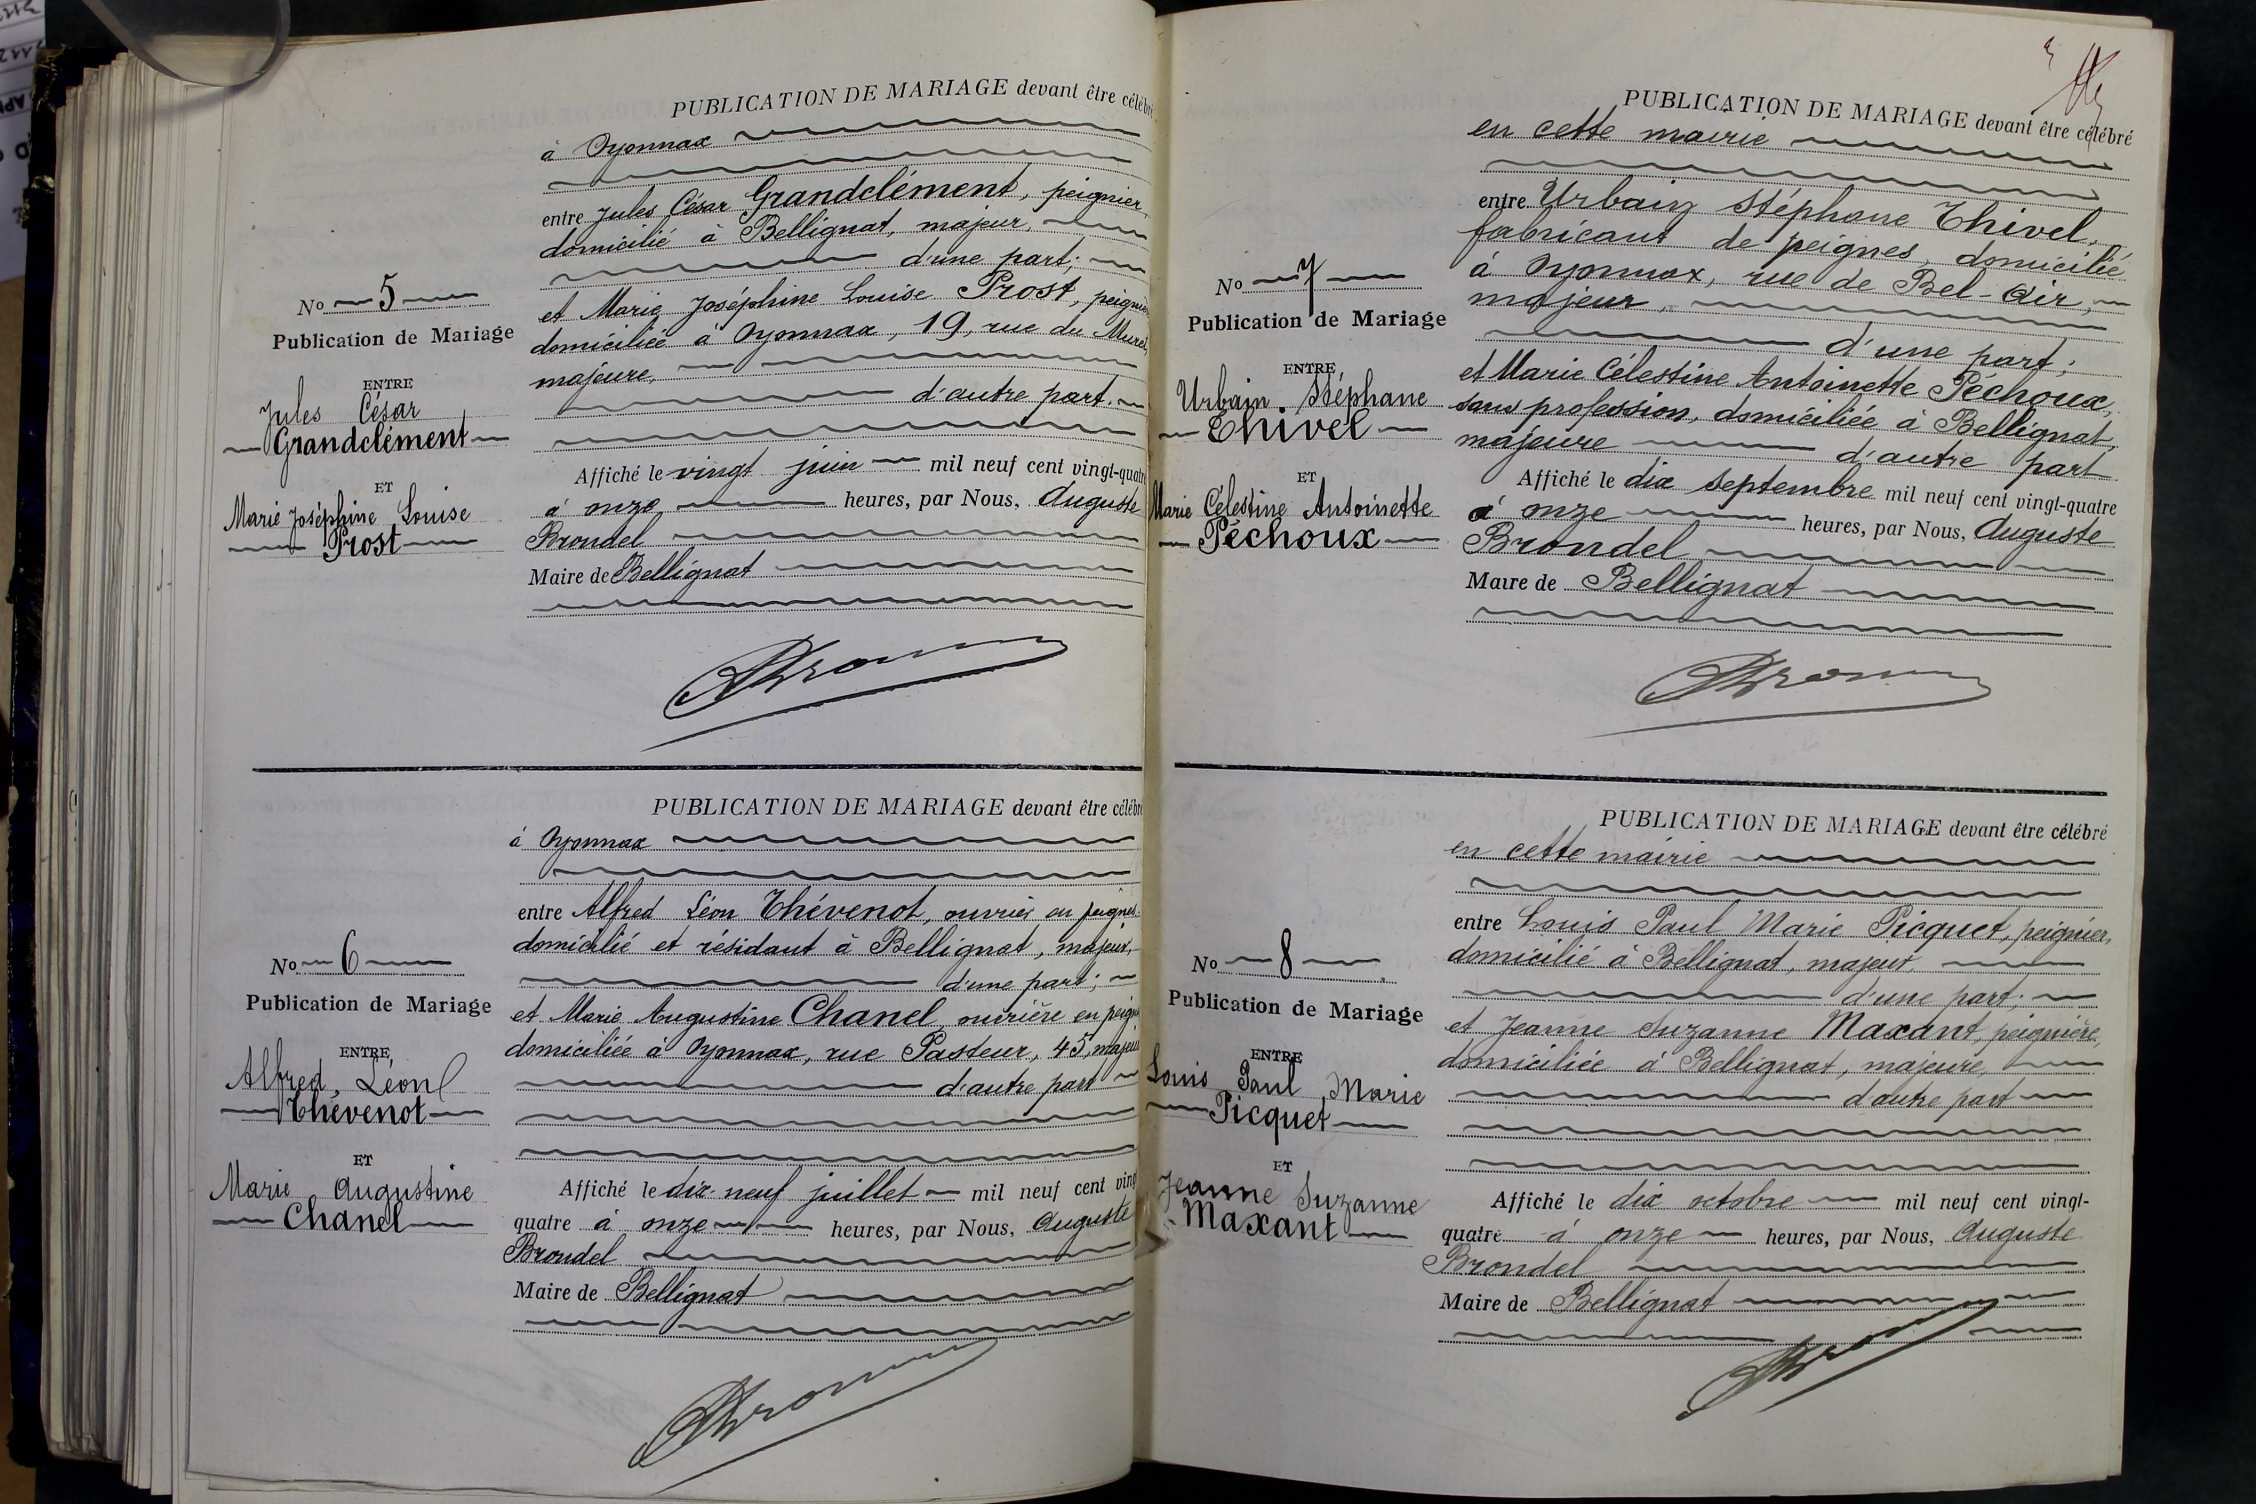 PUBLICATION DE MARIAGE devant être célébré
à Oyonnax
entre Jules César Grandclément, peignier,
domicilié à Bellignat, majeur,
d'une part;
et Marie Joséphine Louise Prost,
domiciliée à Oyonnax, 19, rue du
majeure,
d'autre part.
Affiché le vingt juin mil neuf cent vingt-quatre
à onze heures, par Nous, Auguste
Brondel
Maire de Bellignat
No 5
Publication de Mariage
ENTRE
Jules César
Grandclément
ET
Marie Joséphine Louise
Prost
PUBLICATION DE MARIAGE devant être célébré
à Oyonnax
entre Alfred Léon Thévenot, ouvrier en peignes
domicilié et résidant à Bellignat, majeur,
d'une part;
et Marie Augustine Chanel, ouvrière en
domiciliée à Oyonnax, rue Pasteur, 45,
d'autre part
Affiché le dix-neuf juillet mil neuf cent
quatre à onze heures, par Nous, Auguste
Brondel
Maire de Bellignat
No 6
Publication de Mariage
ENTRE
Alfred, Léon
Thévenot
ET
Marie Augustine
Chanel
PUBLICATION DE MARIAGE devant être célébré
en cette mairie
entre Urbain Stéphane Thivel,
fabricant de peignes, domicilié
à Oyonnax, rue de Bel-Air,
majeur,
d'une part;
et Marie Célestine Antoinette Péchoux,
sans profession, domiciliée à Bellignat,
majeure d'autre part
Affiché le dix septembre mil neuf cent vingt-quatre
à onze heures, par Nous, Auguste
Brondel
Maire de Bellignat
No 7
Publication de Mariage
ENTRE
Urbain Stéphane
Thivel
ET
Marie Célestine Antoinette
Péchoux
PUBLICATION DE MARIAGE devant être célébré
en cette mairie
entre Louis Paul Marie Picquet, peignier,
domicilié à Bellignat, majeur,
d'une part;
et Jeanne Suzanne Maxant, peignière,
domiciliée à Bellignat, majeure,
d'autre part
Affiché le dix octobre mil neuf cent vingt-
quatre à onze heures, par Nous, Auguste
Brondel
Maire de Bellignat
No 8
Publication de Mariage
ENTRE
Louis Paul Marie
Picquet
ET
Jeanne Suzanne
Maxant